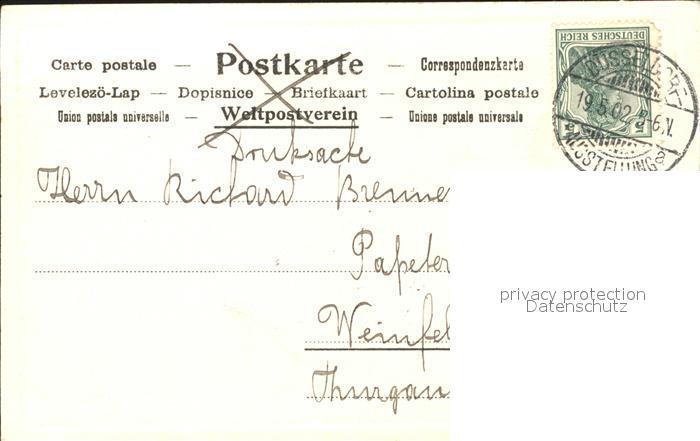 Carte postale — Postkarte — Correspondenzkarte
Levelezö-Lap — Dopisnice — Briefkaart — Cartolina postale
Union postale universelle — Weltpostverein — Unione postale universale
Drucksache
Herrn Richard Brenne
Papeter
Weinfel
Thurgau
DEUTSCHES REICH
5 5
DÜSSELDORF
19.5.02. 5-6 N.
AUSSTELLUNG
privacy protection
Datenschutz